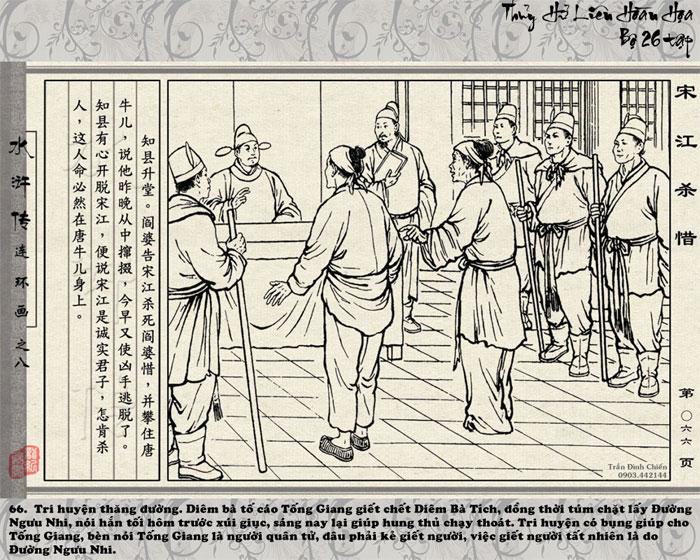 Thủy Hử Liên Hoàn Họa
Bộ 26 tập
宋江杀惜
水浒传连环画之八
知县升堂。阎婆告宋江杀死阎婆惜，并攀住唐
牛儿，说他昨晚从中撺掇，今早又使凶手逃脱了。
知县有心开脱宋江，便说宋江是诚实君子，怎肯杀
人，这人命必然在唐牛儿身上。
第〇六六页
Trần Đình Chiến
0903.442144
66. Tri huyện thăng đường. Diêm bà tố cáo Tống Giang giết chết Diêm Bà Tích, đồng thời túm chặt lấy Đường
Ngưu Nhi, nói hắn tối hôm trước xúi giục, sáng nay lại giúp hung thủ chạy thoát. Tri huyện có bụng giúp cho
Tống Giang, bèn nói Tống Giang là người quân tử, đâu phải kẻ giết người, việc giết người tất nhiên là do
Đường Ngưu Nhi.